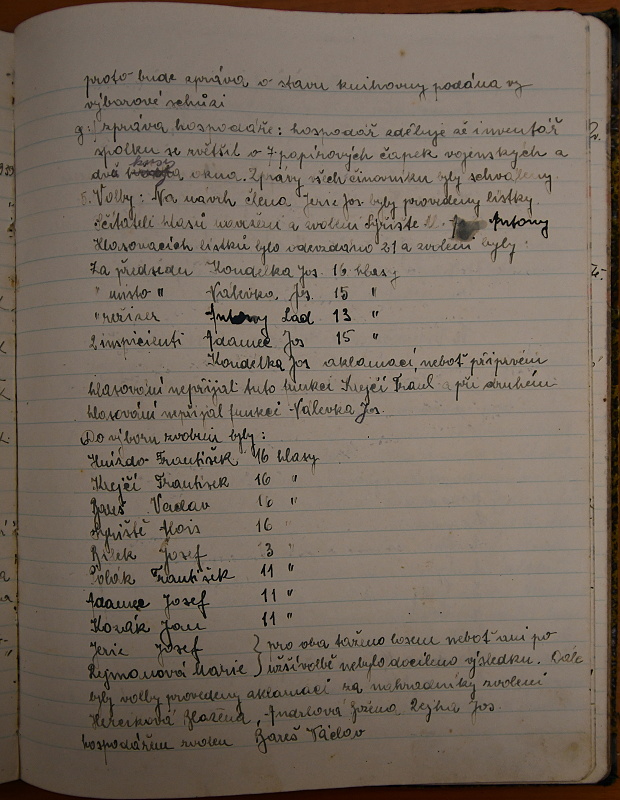 proto bude zpráva o stavu knihovny podána vy
výborové schůzi
g./ zpráva hospodáře: hospodář sděluje že inventář
spolku se zvětšil o 7 papírových čapek vojenských a
dvě kusy okna. Zprávy všech činovníků byly schváleny.
Volby: Na návrh člena Jerie Jos. byly provedeny lístky.
Sčitateli hlasů navrženi a zvoleni Spiště Al. Antony
Hlasovacích lístků bylo odevzdáno 21 a zvoleni byly:
Za předsedu Koudelka Jos. 16 hlasy
" místo " Valevka Jos. 15 "
" režiser Antony Lad. 13 "
2 inspicienti Adamec Jos 15 "
Koudelka Jos aklamací, neboť při prvém
hlasování nepřijal tuto funkci Krejčí Frant. a při druhém
hlasování nepřijal funkci Valevka Jos.
Do výboru zvoleni byly:
František 16 hlasy
Krejčí František 16 "
Bareš Václav 16 "
Spiště Alois 16 "
Bílek Josef 3 "
František 11 "
Adamec Josef 11 "
Kozák Jan 11 "
Jerie Josef } pro oba taženo losem neboť ani po
Rejmanová Marie } užší volbě nebylo docíleno výsledku. Dále
byly volby provedeny aklamací za náhradníky zvoleni
Blažena, Božena Jos.
hospodářem zvolen Bareš Václav